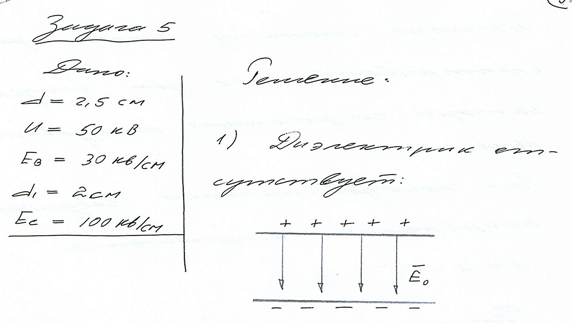 Задача 5
Дано:
d = 2,5 см
U = 50 кВ
Eв = 30 кв/см
d₁ = 2 см
Eс = 100 кв/см
Решение:
1) Диэлектрик от-
сутствует:
+ + + + +
E̅₀
– – – – –